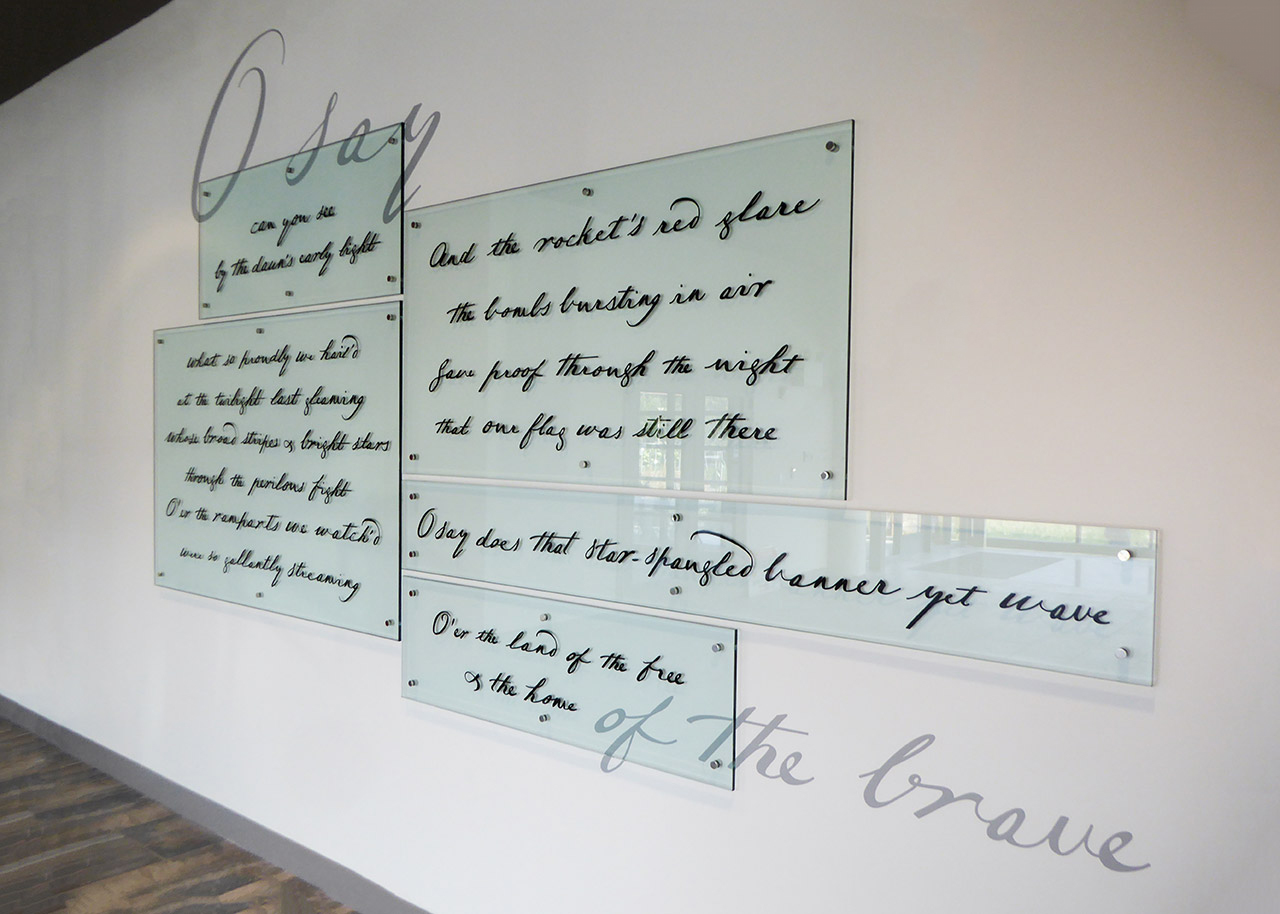 O say
can you see
by the dawn's early light
what so proudly we hail'd
at the twilight last gleaming
whose broad stripes & bright stars
through the perilous fight
O'er the ramparts we watch'd
were so gallantly streaming
And the rocket's red glare
the bombs bursting in air
Gave proof through the night
that our flag was still there
O say does that star-spangled banner yet wave
O'er the land of the free
& the home
of the brave